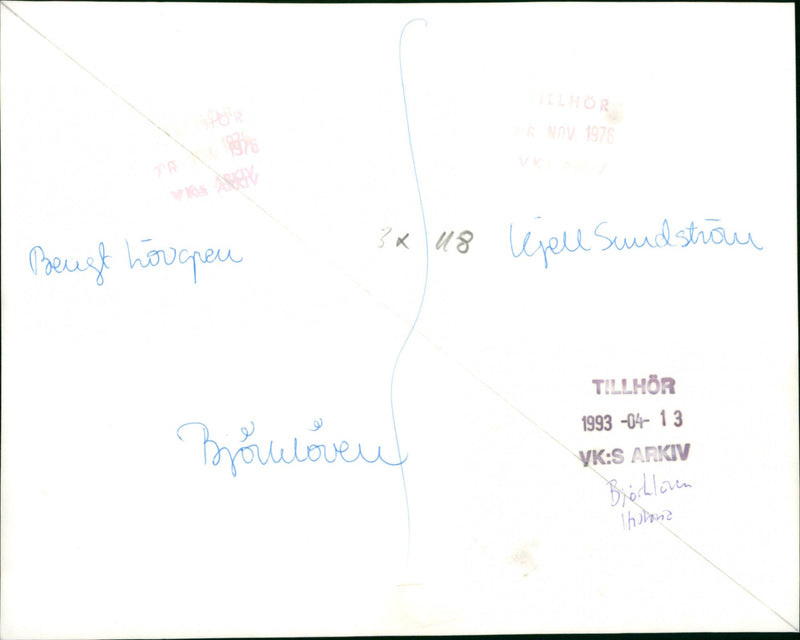 TILLHÖR
26 NOV 1976
VK:S ARKIV
1976
VK:S ARKIV
Bengt Lövgren
3x 118
Kjell Sundström
Björklöven
TILLHÖR
1993 -04- 13
VK:S ARKIV
Björklöven
Historia